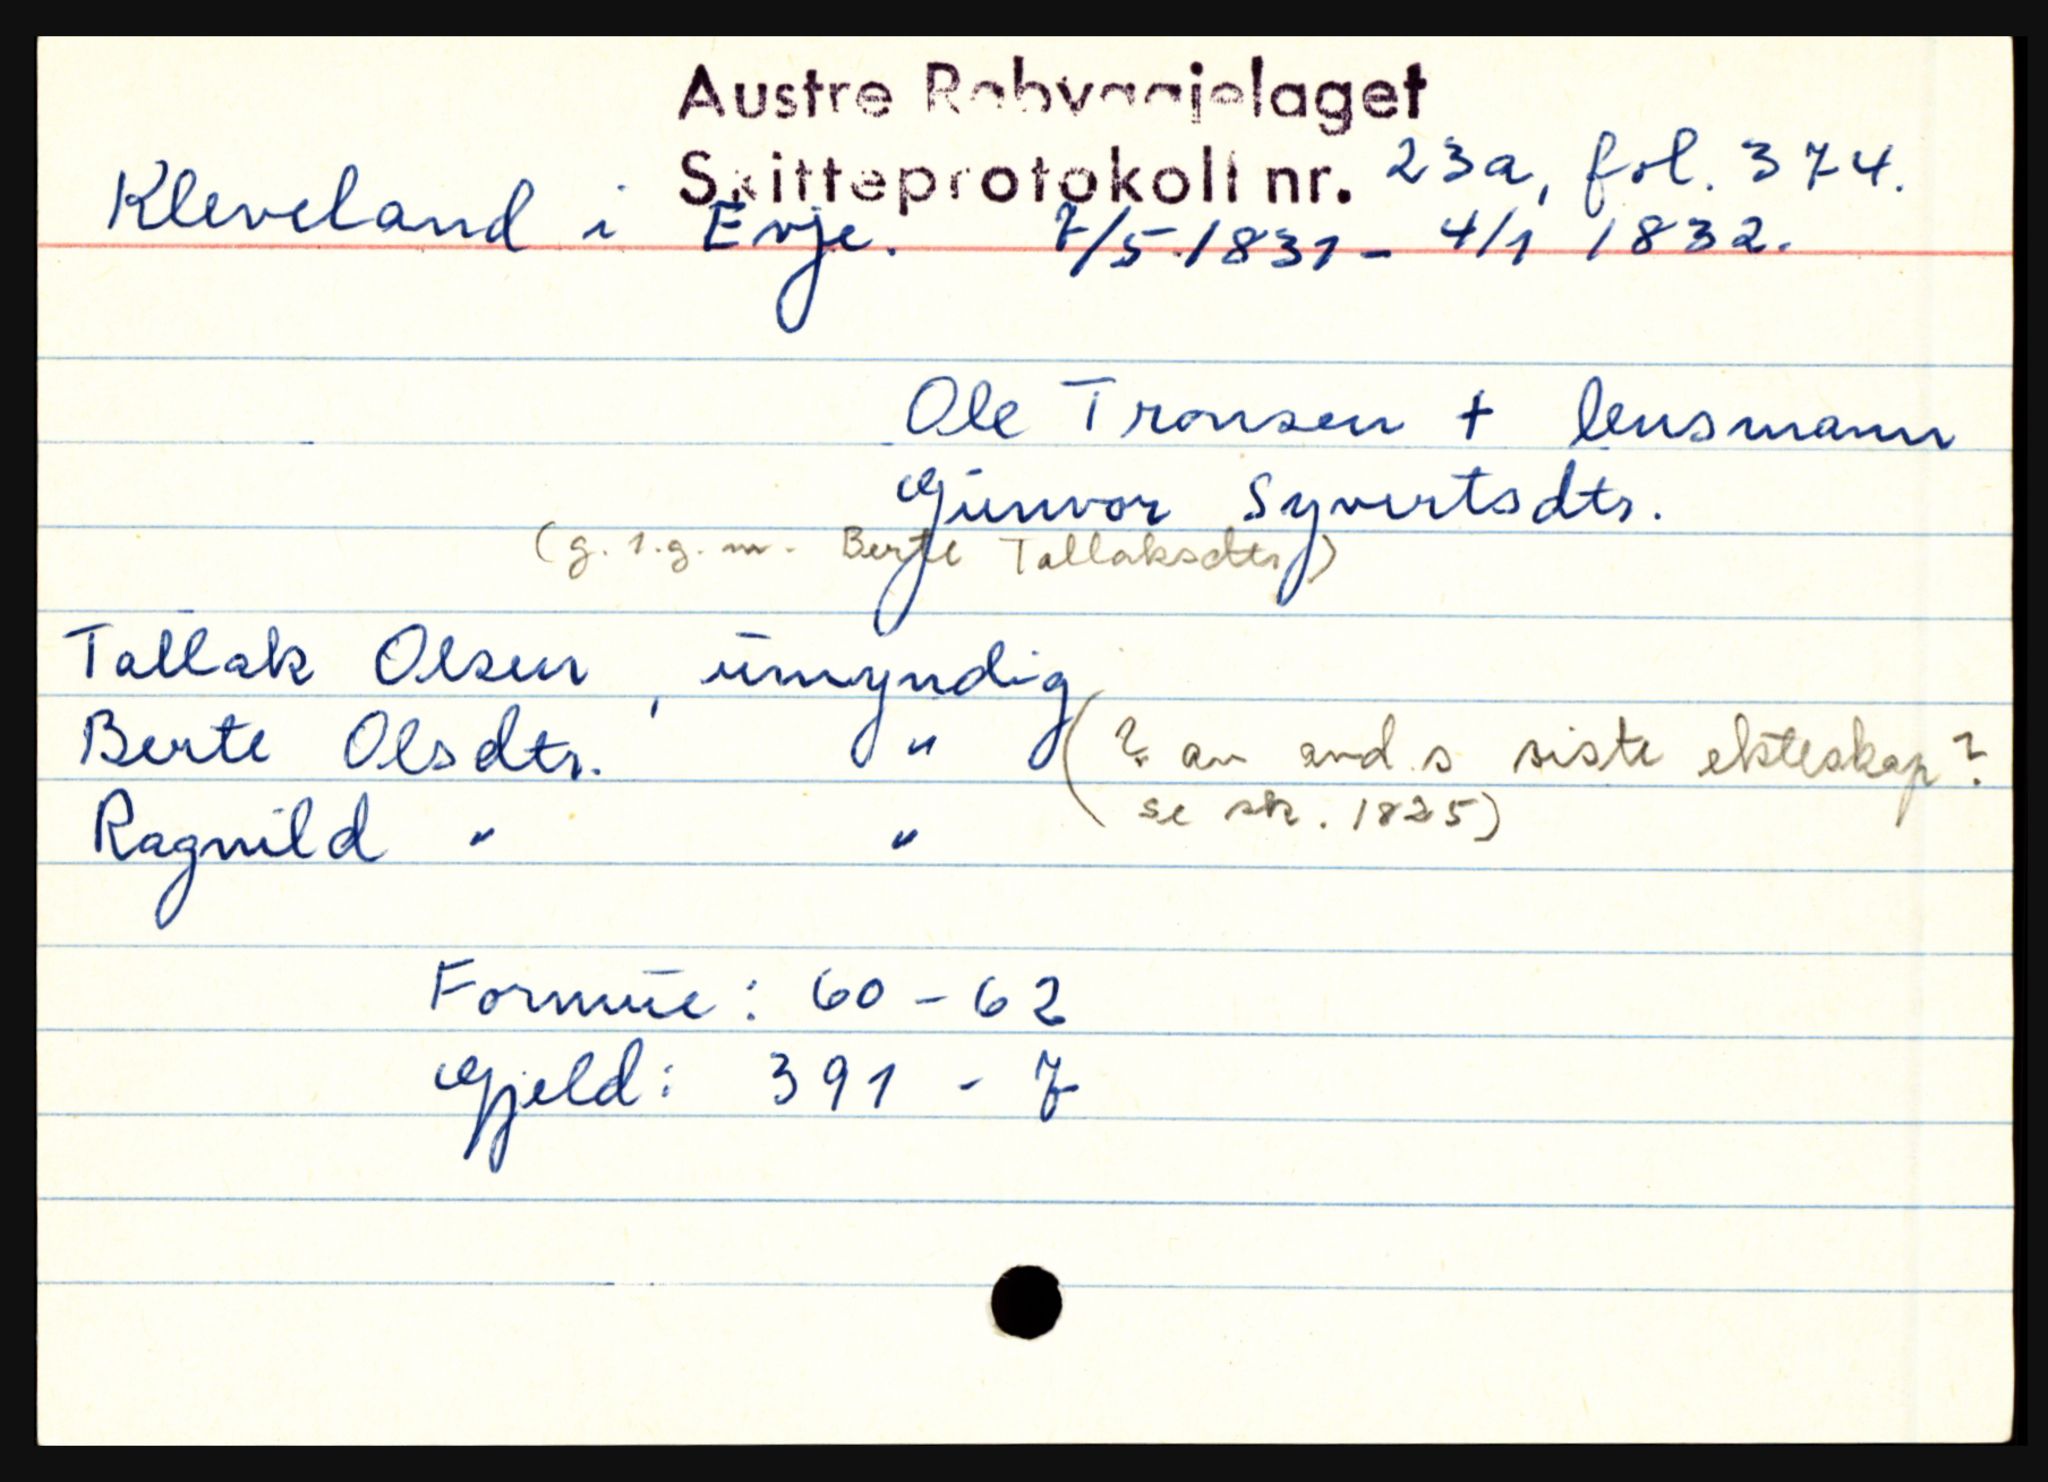 Austre Råbyggjelaget
Skifteprotokoll nr. 23a, fol. 374.
Kleveland i Evje. 7/5.1831 - 4/1 1832.
Ole Tronsen + lensmann
Gunvor Syvertsdtr.
(g. 1. g. m. Berte Tallaksdtr)
Tallak Olsen, umyndig
Berte Olsdtr. " (? av avd.s siste ekteskap?
Ragnild " " se sk. 1825)
Formue: 60 - 62
Gjeld: 391 - 7